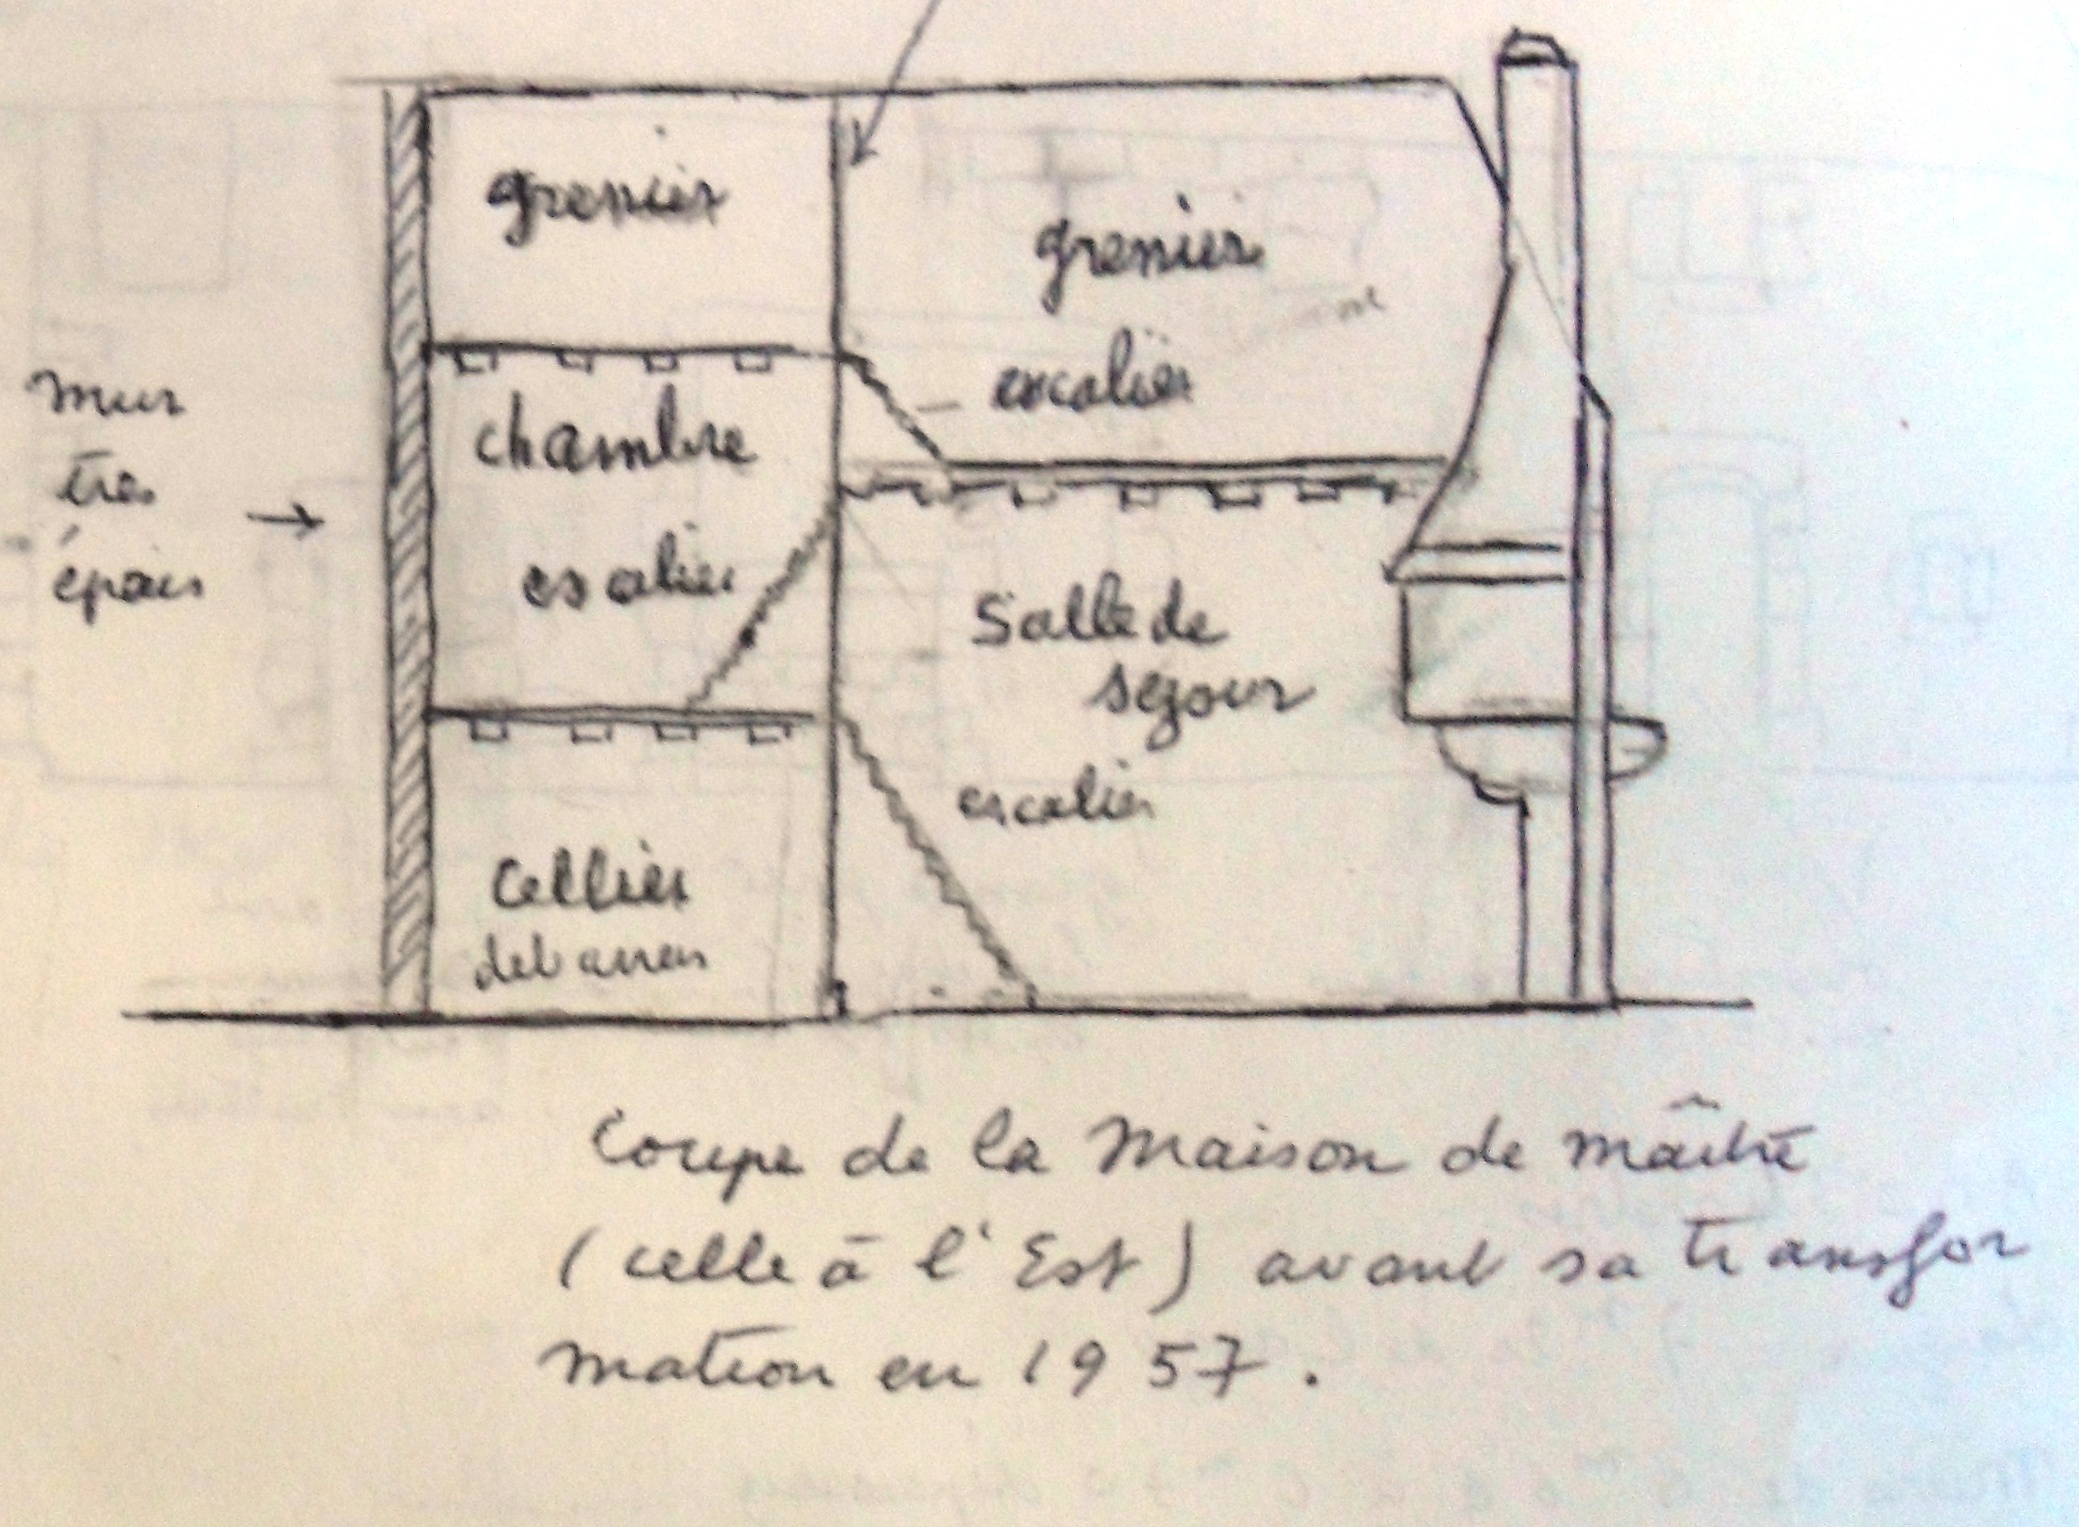 grenier
grenier
escalier
mur
très
épais
chambre
escalier
Salle de
séjour
escalier
Cellier
debarras
Coupe de la Maison de maître
(celle à l'Est) avant sa transfor
mation en 1957.